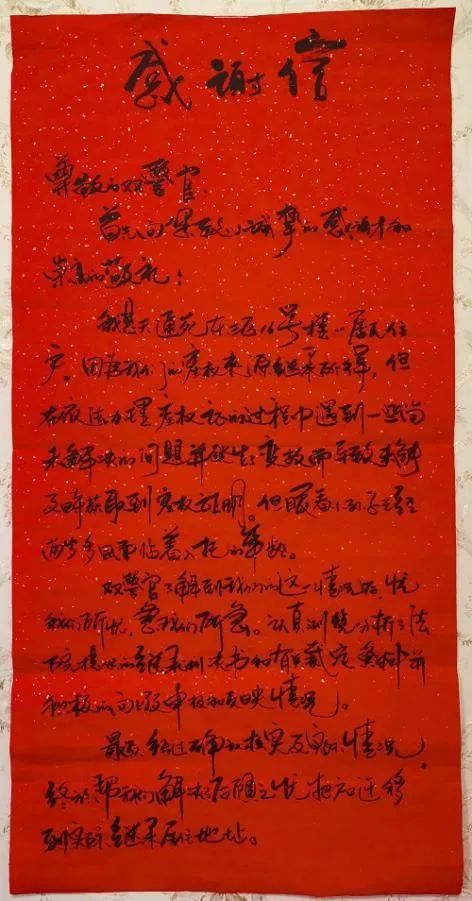 感谢信
尊敬的双警官：
首先向您致以诚挚的感谢和
崇高的敬礼！
我是天通苑东三区16号楼的居民住
户，因为我们的产权来源继承所得，但
在依法办理产权证的过程中遇到一些尚
未解决的问题并发生变故而导致未能
及时获取到产权证明。但眼看小孙子已经
两岁多且面临着入托的年龄。
双警官了解到我们的这一情况后，忧
我们所忧，急我们所急。认真浏览分析了法
院提供的继承判决书和有关裁定资料并
积极的向上级申报和反映情况。
最后经过确认核实及实际情况，
终于帮我们解决了后顾之忧，把户口迁移
到实际继承居住地址。